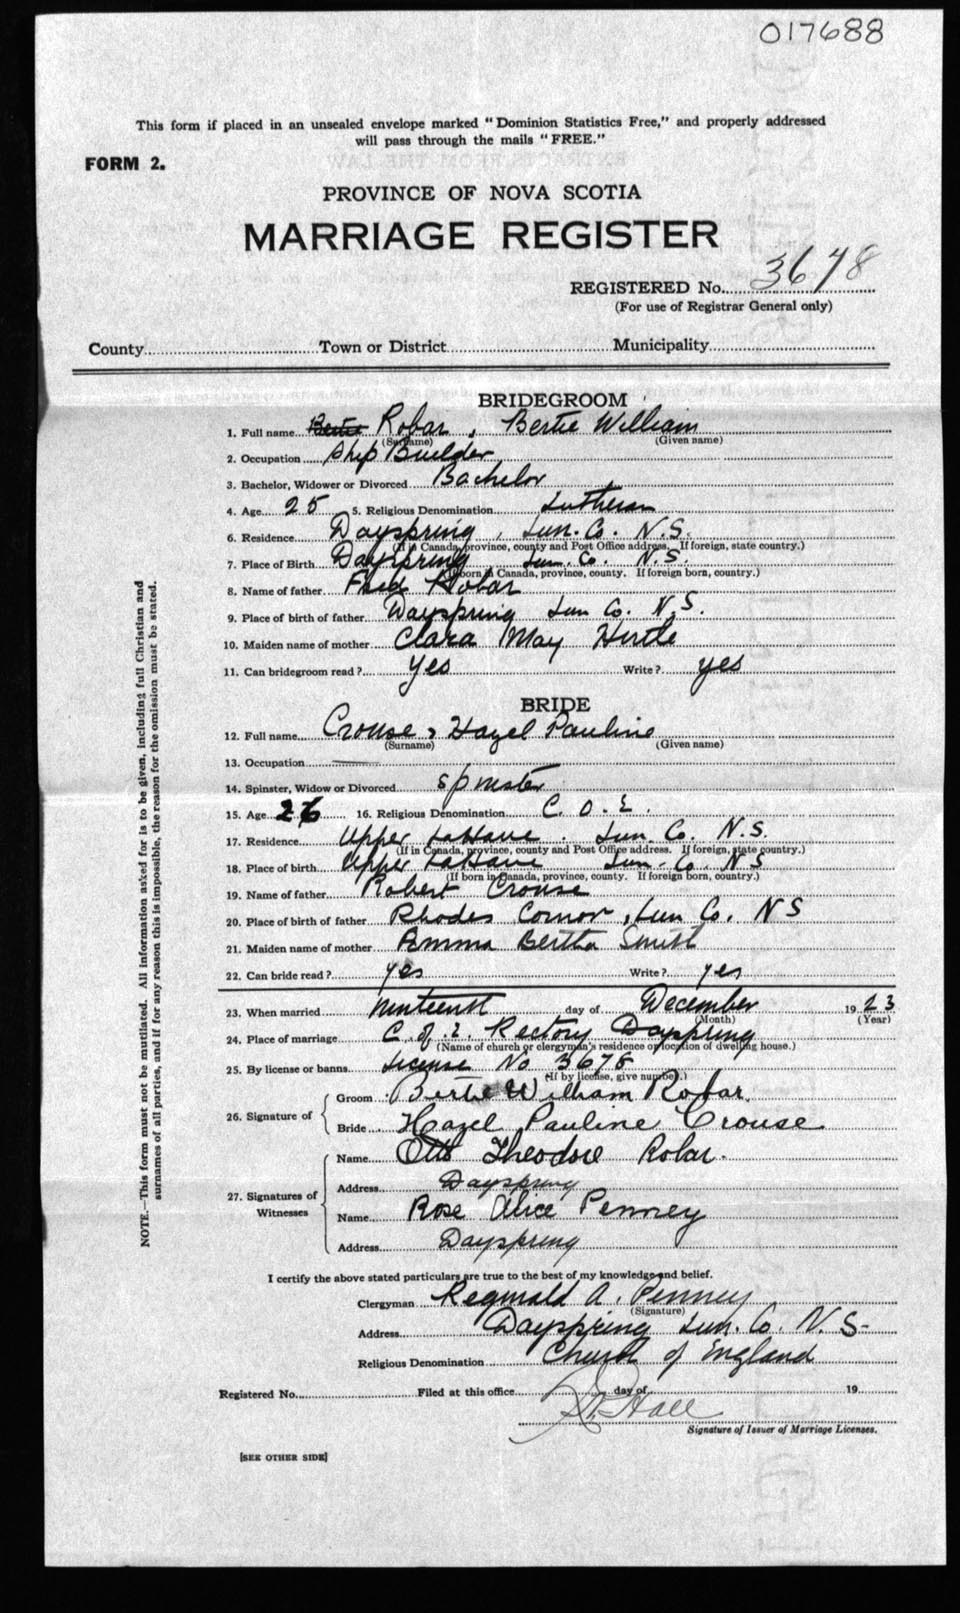 017688
This form if placed in an unsealed envelope marked "Dominion Statistics Free," and properly addressed
will pass through the mails "FREE."
FORM 2.
PROVINCE OF NOVA SCOTIA
MARRIAGE REGISTER
REGISTERED No. 3678
(For use of Registrar General only)
County Town or District Municipality
BRIDEGROOM
1. Full name Bertie Robar, Bertie William
(Surname) (Given name)
2. Occupation Ship Builder
3. Bachelor, Widower or Divorced Bachelor
4. Age 25 5. Religious Denomination Lutheran
6. Residence Dayspring, Lun. Co. N.S.
(If in Canada, province, county and Post Office address. If foreign, state country.)
7. Place of Birth Dayspring Lun. Co. N.S.
(If born in Canada, province, county. If foreign born, country.)
8. Name of father Fred Robar
9. Place of birth of father Dayspring Lun Co. N.S.
10. Maiden name of mother Clara May Hirtle
11. Can bridegroom read? yes Write? yes
BRIDE
12. Full name Crouse, Hazel Pauline
(Surname) (Given name)
13. Occupation
14. Spinster, Widow or Divorced spinster
15. Age 26 16. Religious Denomination C. O. E.
17. Residence Upper LaHave. Lun. Co. N.S.
(If in Canada, province, county and Post Office address. If foreign, state country.)
18. Place of birth Upper LaHave Lun. Co N S
(If born in Canada, province, county. If foreign born, country.)
19. Name of father Robert Crouse
20. Place of birth of father Rhodes Cornor, Lun Co. N S
21. Maiden name of mother Emma Bertha Smith
22. Can bride read? yes Write? yes
23. When married Ninteenth day of December 1923
(Month) (Year)
24. Place of marriage C. of E. Rectory Dayspring
(Name of church or clergyman's residence or location of dwelling house.)
25. By license or banns License No 3678
(If by license, give number.)
26. Signature of Groom Bertie William Robar.
Bride Hazel Pauline Crouse
27. Signatures of Witnesses Name Otto Theodore Robar.
Address Dayspring
Name Rose Alice Penney
Address Dayspring
I certify the above stated particulars are true to the best of my knowledge and belief.
Clergyman Reginald A. Penney
(Signature)
Address Dayspring Lun. Co. N. S-
Religious Denomination Church of England
Registered No. Filed at this office day of 19
Hall
Signature of Issuer of Marriage Licenses.
[SEE OTHER SIDE]
NOTE.—This form must not be mutilated. All information asked for is to be given, including full Christian and
surnames of all parties, and if for any reason this is impossible, the reason for the omission must be stated.